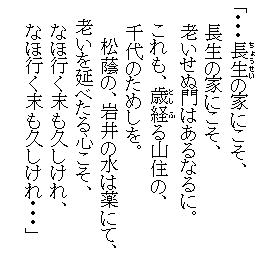 「・・・長生の家にこそ、
長生の家にこそ、
老いせぬ門はあるなるに。
これも、歳経る山住の、
千代のためしを。
松蔭の、岩井の水は薬にて、
老いを延べたる心こそ、
なほ行く末も久しけれ、
なほ行く末も久しけれ・・・」